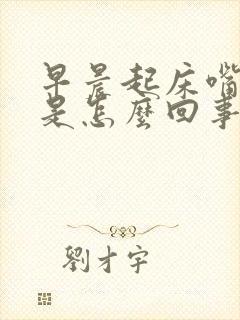 早晨起床嘴
是怎麼回事
劉才宇